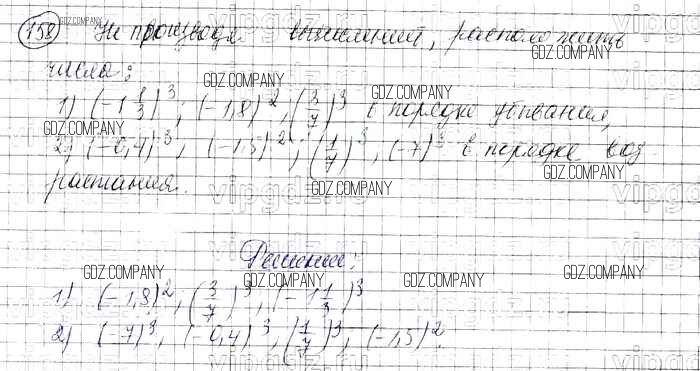 158 Не производя вычислений, расположить
числа:
1) (-1 1/3)^3; (-1,8)^2; (3/7)^3 в порядке убывания,
2) (-0,4)^3; (-1,5)^2; (1/7)^3, (-7)^3 в порядке воз
растания.
Решение:
1) (-1,8)^2; (3/7)^3; (-1 1/3)^3
2) (-7)^3, (-0,4)^3; (1/7)^3, (-1,5)^2.
GDZ.COMPANY
GDZ.COMPANY
GDZ.COMPANY
GDZ.COMPANY
GDZ.COMPANY
GDZ.COMPANY
GDZ.COMPANY
GDZ.COMPANY
GDZ.COMPANY
GDZ.COMPANY
GDZ.COMPANY
vipgdz.ru